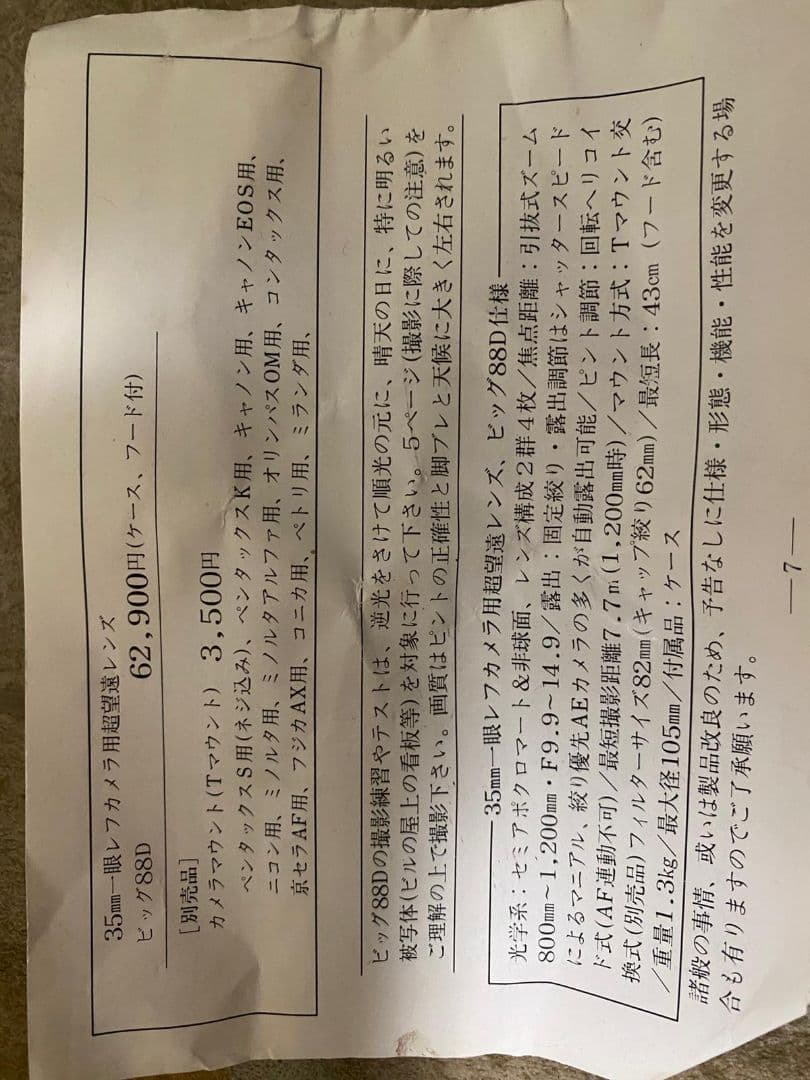 35㎜一眼レフカメラ用超望遠レンズ
ビッグ88D　62,900円(ケース、フード付)
[別売品]
カメラマウント(Tマウント)　3,500円
ペンタックスS用(ネジ込み)、ペンタックスK用、キャノン用、キャノンEOS用、
ニコン用、ミノルタ用、ミノルタアルファ用、オリンパスOM用、コンタックス用、
京セラAF用、フジカAX用、コニカ用、ペトリ用、ミランダ用、
ビッグ88Dの撮影練習やテストは、逆光をさけて順光の元に、晴天の日に、特に明るい
被写体(ビルの屋上の看板等)を対象に行って下さい。5ページ(撮影に際しての注意)を
ご理解の上で撮影下さい。画質はピントの正確性と脚ブレと天候に大きく左右されます。
35㎜一眼レフカメラ用超望遠レンズ、ビッグ88D仕様
光学系：セミアポクロマート＆非球面、レンズ構成2群4枚／焦点距離：引抜式ズーム
800㎜〜1,200㎜・F9.9〜14.9／露出：固定絞り・露出調節はシャッタースピード
によるマニアル、絞り優先AEカメラの多くが自動露出可能／ピント調節：回転ヘリコイ
ド式(AF連動不可)／最短撮影距離7.7m(1,200㎜時)／マウント方式：Tマウント交
換式(別売品)フィルターサイズ82㎜(キャップ絞り62㎜)／最短長：43㎝（フード含む）
／重量1.3kg／最大径105㎜／付属品：ケース
諸般の事情、或いは製品改良のため、予告なしに仕様・形態・機能・性能を変更する場
合も有りますのでご了承願います。
—7—